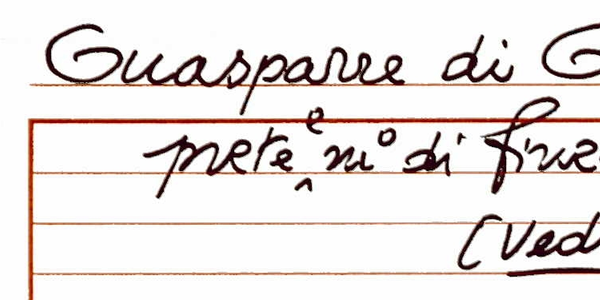 Guasparre di G
prete e mo di fine
(Ved